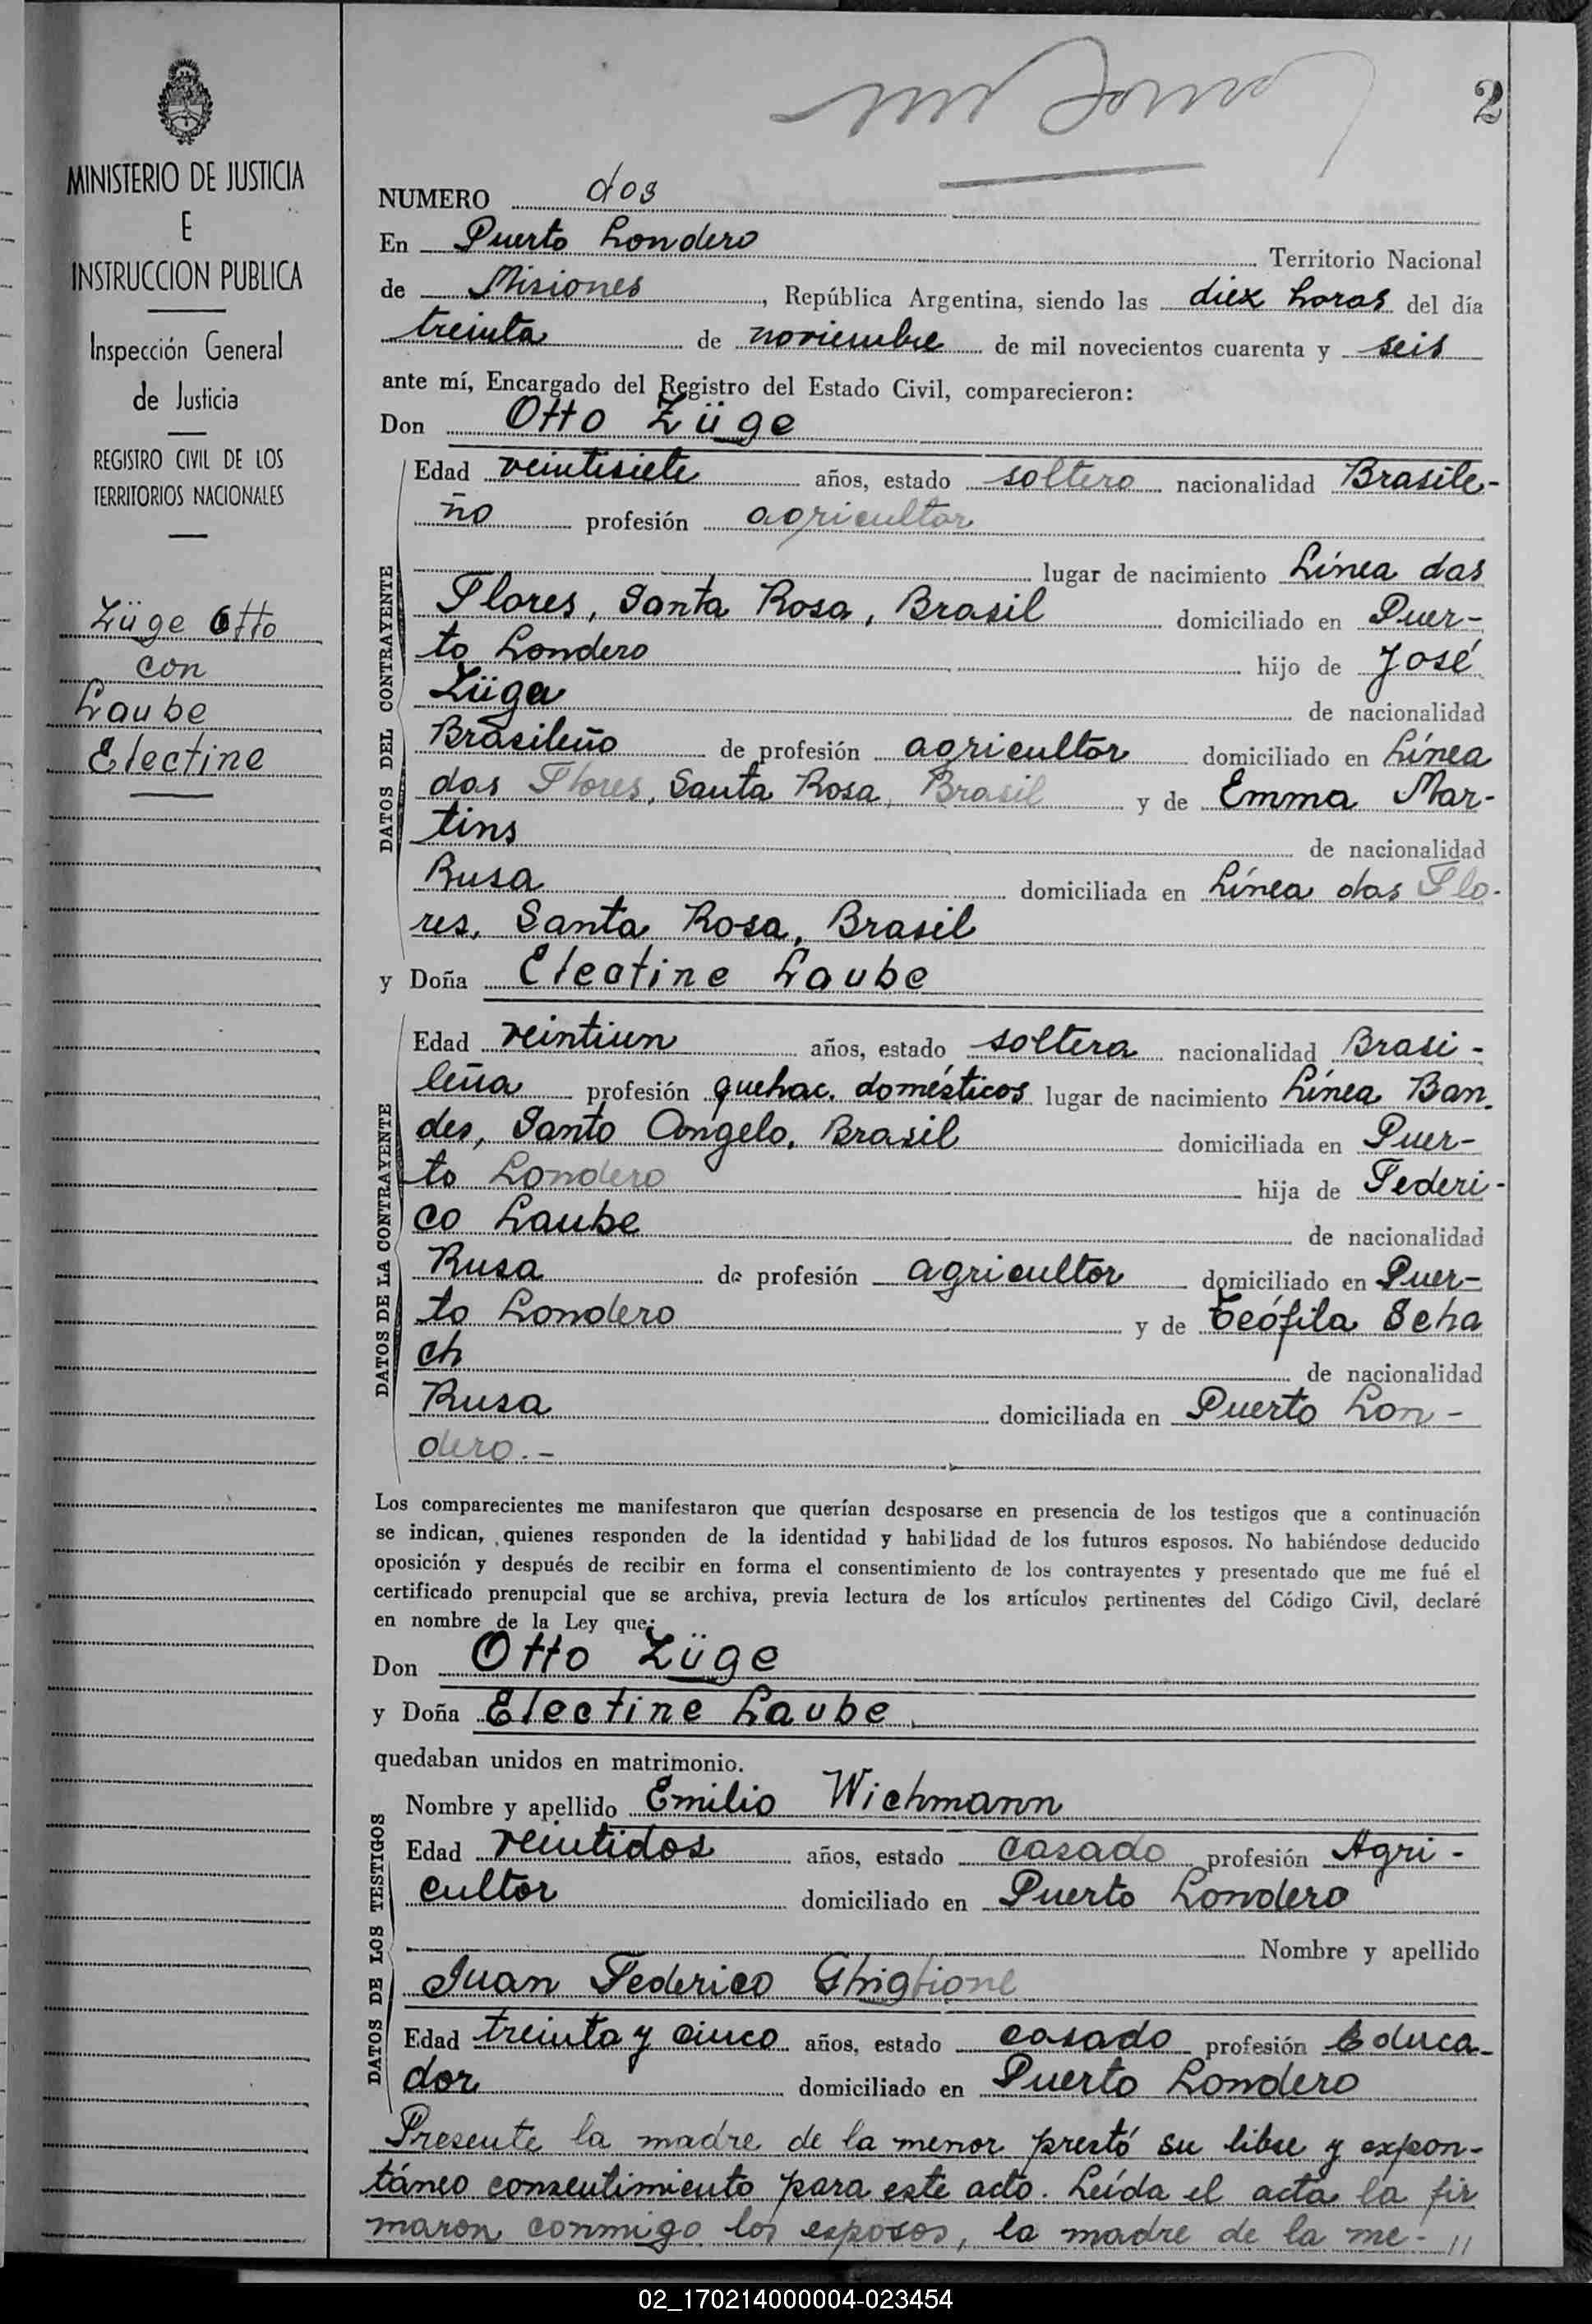 MINISTERIO DE JUSTICIA
E
INSTRUCCION PUBLICA
Inspección General
de Justicia
REGISTRO CIVIL DE LOS
TERRITORIOS NACIONALES
Züge Otto
con
Laube
Electine
2
NUMERO dos
En Puerto Londero Territorio Nacional
de Misiones, República Argentina, siendo las diez horas del día
treinta de noviembre de mil novecientos cuarenta y seis
ante mí, Encargado del Registro del Estado Civil, comparecieron:
Don Otto Züge
DATOS DEL CONTRAYENTE
Edad veintisiete años, estado soltero nacionalidad Brasile-
ño profesión agricultor
lugar de nacimiento Línea das
Flores, Santa Rosa, Brasil domiciliado en Puer-
to Londero hijo de José
Züge de nacionalidad
Brasileño de profesión agricultor domiciliado en Línea
das Flores, Santa Rosa, Brasil y de Emma Mar-
tins de nacionalidad
Rusa domiciliada en Línea das Flo-
res, Santa Rosa, Brasil
y Doña Electine Laube
DATOS DE LA CONTRAYENTE
Edad veintiun años, estado soltera nacionalidad Brasi-
leña profesión quehac. domésticos lugar de nacimiento Línea Ban
des, Santo Angelo, Brasil domiciliada en Puer-
to Londero hija de Federi-
co Laube de nacionalidad
Rusa de profesión agricultor domiciliado en Puer-
to Londero y de Teófila Scha
ch de nacionalidad
Rusa domiciliada en Puerto Lon-
dero.-
Los comparecientes me manifestaron que querían desposarse en presencia de los testigos que a continuación
se indican, quienes responden de la identidad y habilidad de los futuros esposos. No habiéndose deducido
oposición y después de recibir en forma el consentimiento de los contrayentes y presentado que me fué el
certificado prenupcial que se archiva, previa lectura de los artículos pertinentes del Código Civil, declaré
en nombre de la Ley que:
Don Otto Züge
y Doña Electine Laube
quedaban unidos en matrimonio.
DATOS DE LOS TESTIGOS
Nombre y apellido Emilio Wichmann
Edad veintidos años, estado casado profesión Agri-
cultor domiciliado en Puerto Londero
Nombre y apellido
Juan Federico Ghiglione
Edad treinta y cinco años, estado casado profesión Educa-
dor domiciliado en Puerto Londero
Presente la madre de la menor prestó su libre y expon-
táneo consentimiento para este acto. Leída el acta la fir
maron conmigo los esposos, la madre de la me- //
02_170214000004-023454